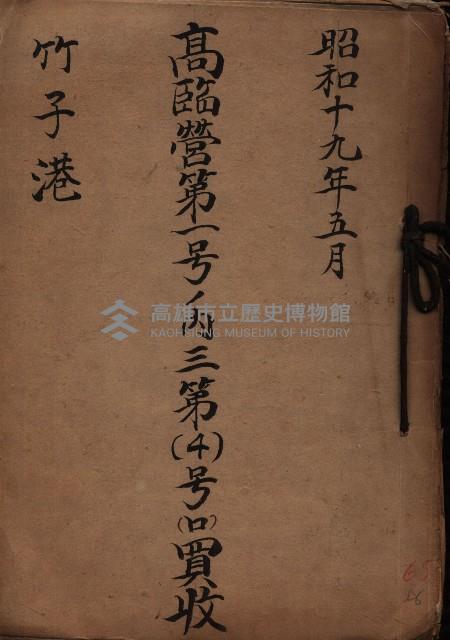 昭和十九年五月
高臨營第一号ノ内三第(4)号(ロ)買收
竹子港
高雄市立歷史博物館
KAOHSIUNG MUSEUM OF HISTORY
65